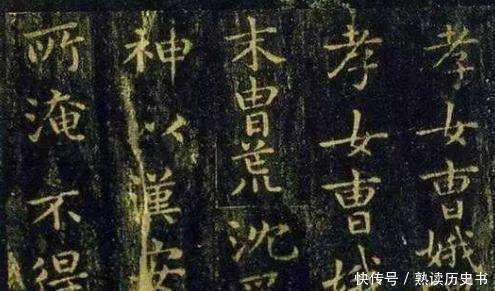 孝女曹娥
孝女曹娥
末胄荒沈
神以漢安
所淹不得
快传号 / 熟读历史书